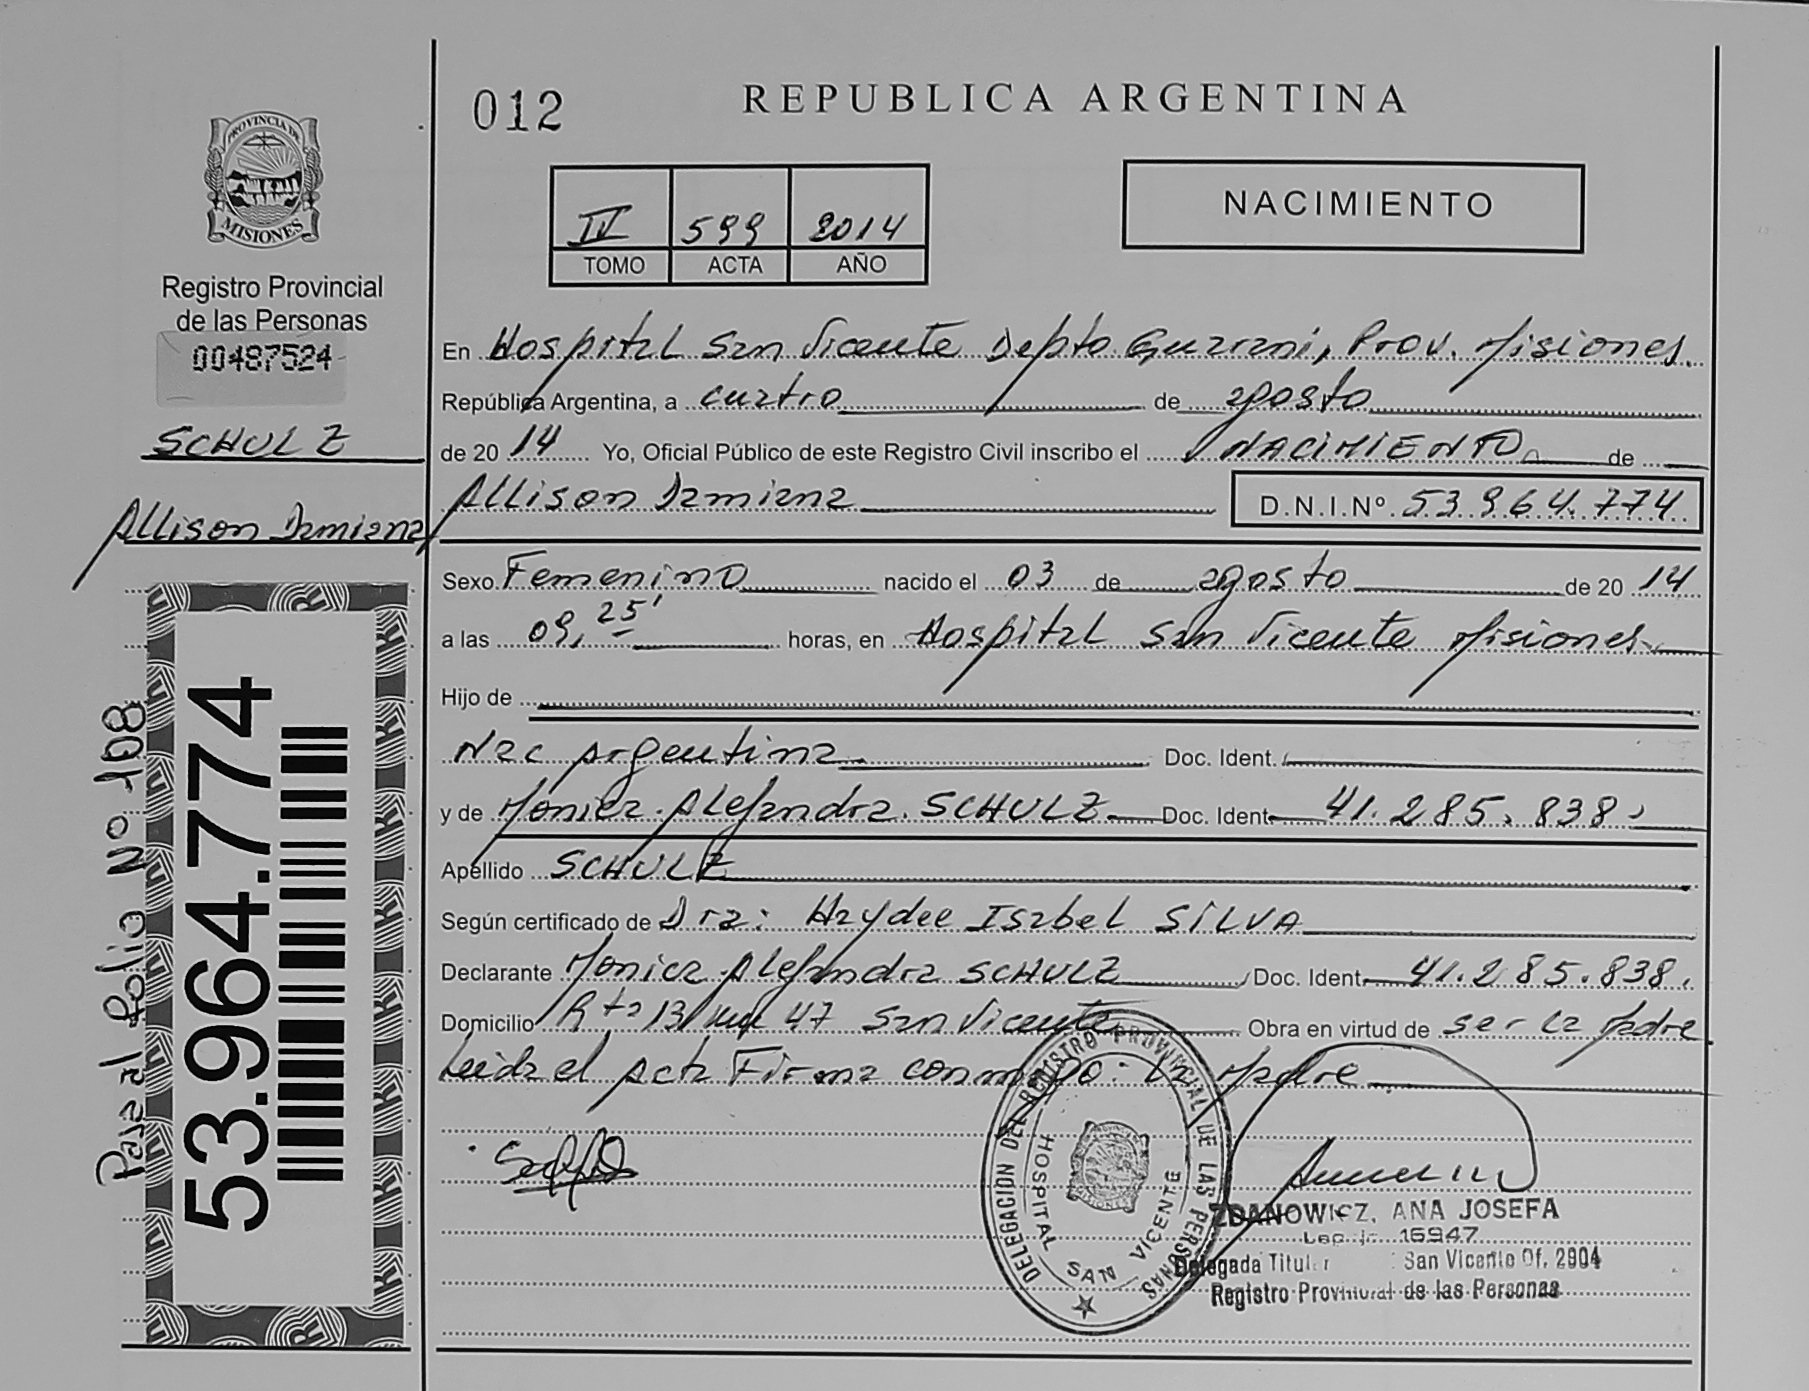 012
REPUBLICA ARGENTINA
PROVINCIA DE
MISIONES
Registro Provincial
de las Personas
00487524
SCHULZ
Allison Damiana
Pasa al folio Nº 108
53.964.774
IV 599 2014
TOMO ACTA AÑO
NACIMIENTO
En Hospital San Vicente Depto. Guarani, Prov. Misiones.
República Argentina, a cuatro de agosto
de 2014 Yo, Oficial Público de este Registro Civil inscribo el NACIMIENTO de
Allison Damiana D.N.I.Nº 53.964.774
Sexo Femenino nacido el 03 de agosto de 2014
a las 09,25' horas, en Hospital San Vicente Misiones
Hijo de
Nac Argentina Doc. Ident.
y de Monica Alejandra SCHULZ Doc. Ident 41.285.838.
Apellido SCHULZ
Según certificado de Dra: Haydee Isabel SILVA
Declarante Monica Alejandra SCHULZ Doc. Ident 41.285.838.
Domicilio Rta 13 47 San Vicente Obra en virtud de ser la Madre
Leida el Acta Firma conmigo: La Madre
DELEGACION DEL REGISTRO PROVINCIAL DE LAS PERSONAS
HOSPITAL SAN VICENTE
ZDANOWICZ, ANA JOSEFA
15947
Delegada Titular San Vicente Of. 2904
Registro Provincial de las Personas